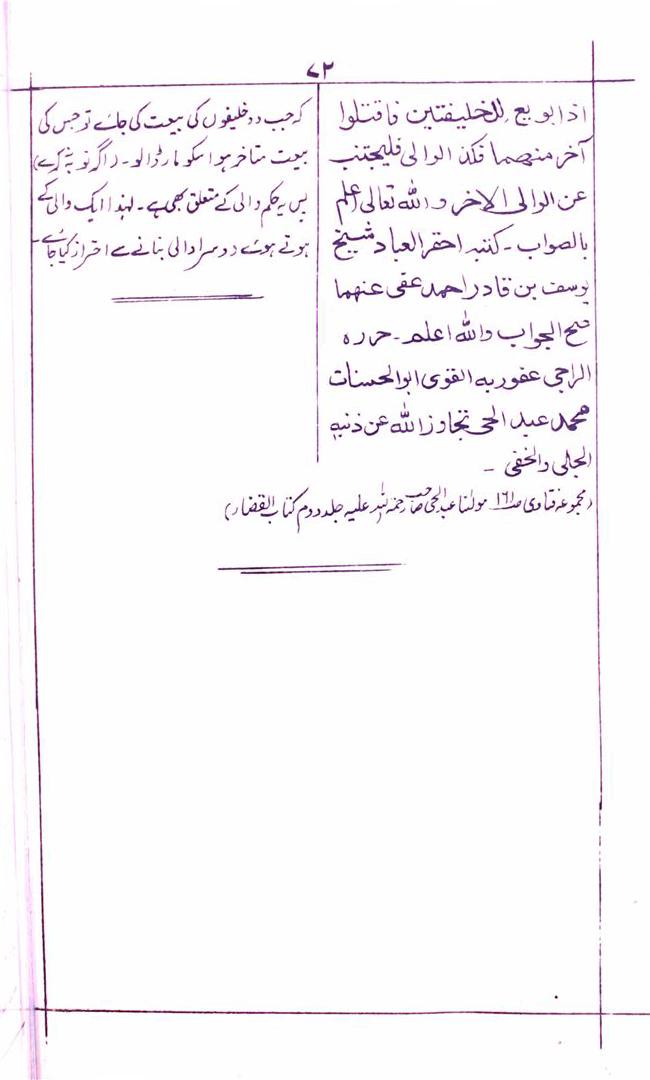 ۷۲
اذا بویع للخلیفتین فاقتلوا
آخر منهما فکذا الوالی فلیجتنب
عن الوالی الاخر والله تعالی اعلم
بالصواب۔ کتبہ احقر العباد شیخ
یوسف بن قادر احمد عفی عنهما
صح الجواب والله اعلم۔ حررہ
الراجی عفو ربہ القوی ابو الحسنات
محمد عبد الحی تجاوز الله عن ذنبہ
الجلی والخفی ۔
کہ جب دو خلیفوں کی بیعت کی جائے تو جس کی
بیعت متاخر ہو اسکو مار ڈالو۔ (اگر توبہ نہ کرے)
پس یہ حکم والی کے متعلق بھی ہے۔ لہذا ایک والی کے
ہوتے ہوئے دوسرا والی بنانے سے احتراز کیا جائے۔
(مجموعہ فتاوی صـ۱۶۱ مولنا عبد الحی صاحب رحمۃ اللہ علیہ جلد دوم کتاب القضاء)